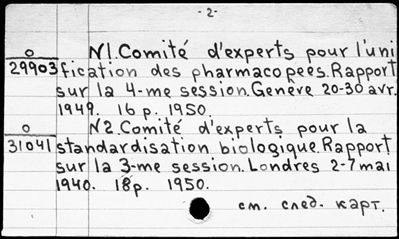 -2-
О
29903
N1. Comité d'experts pour l'uni
fication des pharmacopees. Rapport
sur la 4-me session. Geneve 20-30 avr.
1949. 16 p. 1950.
О
31041
N2. Comité d'experts pour la
standardisation biologique. Rapport
sur la 3-me session. Londres 2-7 mai
1940. 18p. 1950.
см. след. карт.